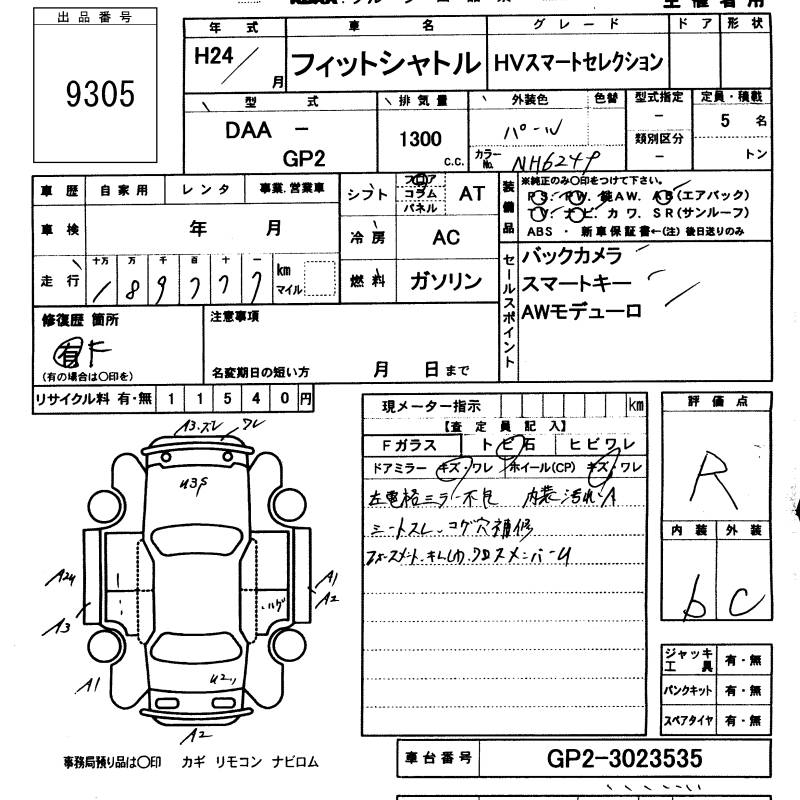 主催者用
出品番号
9305
年式 車名 グレード ドア 形状
H24/月 フィットシャトル HVスマートセレクション
型式 排気量 外装色 色替 型式指定 定員・積載
DAA － GP2 1300 c.c. パール カラーNo. NH624P － 類別区分 － 5 名 トン
車歴 自家用 レンタ 事業.営業車
シフト フロア コラム パネル AT
装備品 ※純正のみ〇印をつけて下さい。
PS. PW. 純AW. AB(エアバック)
TV. ナビ. カワ. SR(サンルーフ)
ABS ・ 新車保証書←(注) 後日送りのみ
車検 年 月
冷房 AC
走行 十万 万 千 百 十 一
189777 km マイル
燃料 ガソリン
セールスポイント
バックカメラ
スマートキー
AWモデューロ
修復歴 箇所
有 F
(有の場合は〇印を)
注意事項
名変期日の短い方 月 日まで
リサイクル料 有・無 11540円
現メーター指示 km
【査定員記入】
Fガラス トビ石 ヒビワレ
ドアミラー キズ・ワレ ホイール(CP) キズ・ワレ
左電格ミラー不良 内装汚れA
シートスレ.コゲ穴補修
評価点
R
内装 外装
b C
A3.スレ ワレ
U3P
A24
A3
A1
A2
A1
U2
A2
ジャッキ工具 有・無
パンクキット 有・無
スペアタイヤ 有・無
事務局預り品は〇印 カギ リモコン ナビロム
車台番号 GP2-3023535